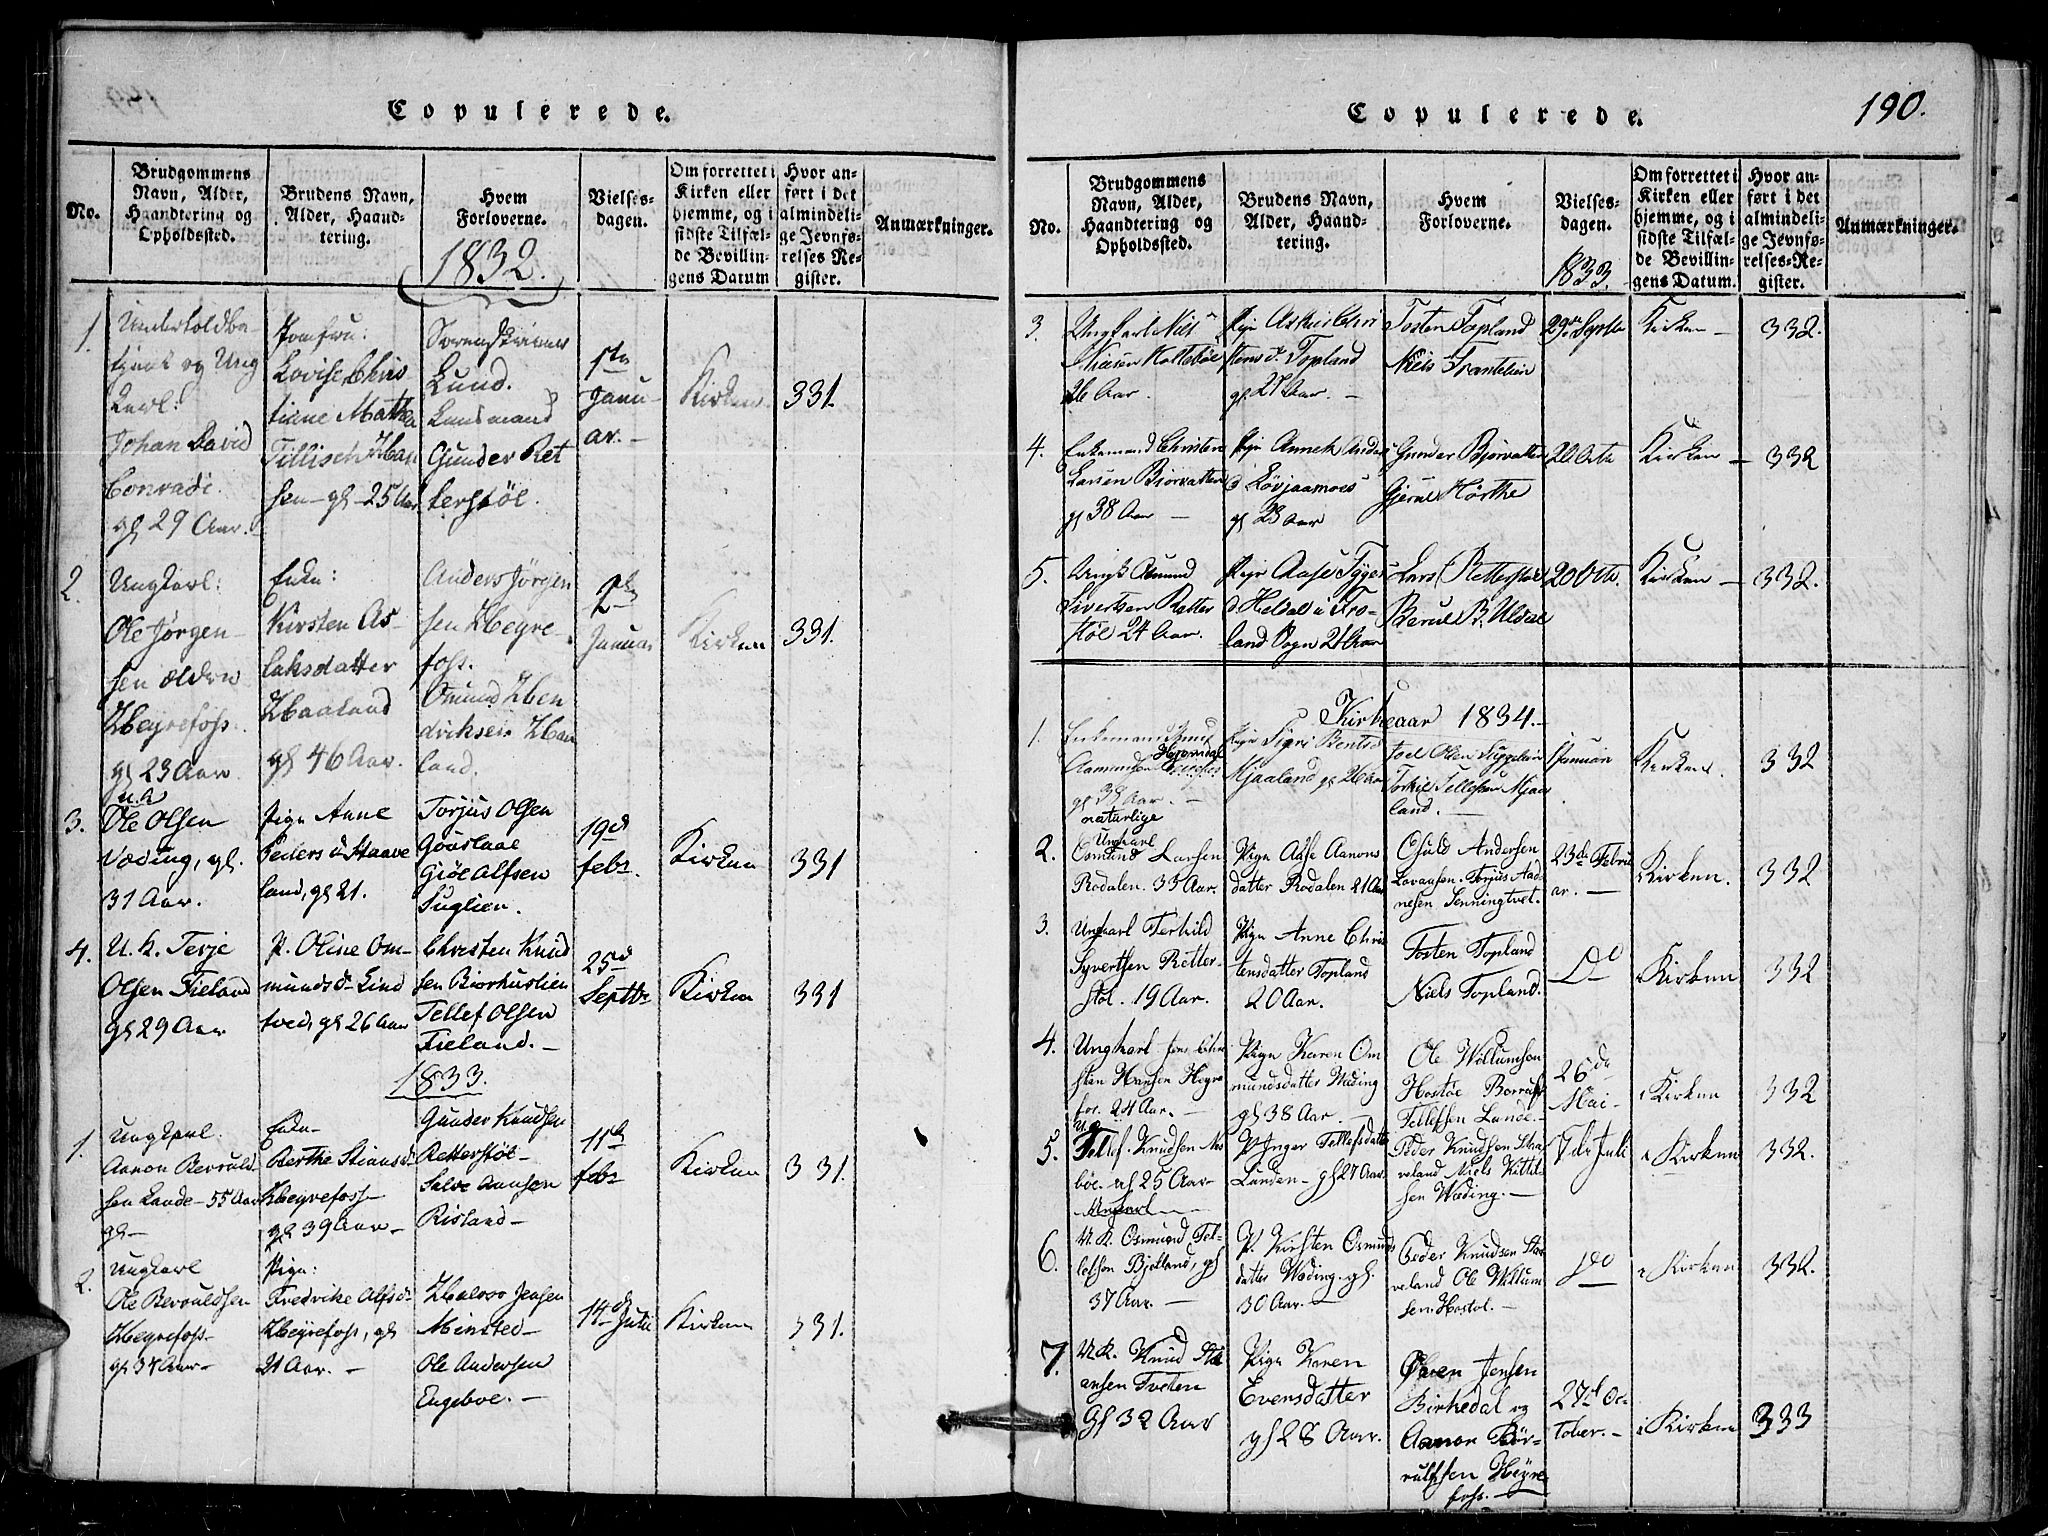 Copulerede.
No.
Brudgommens
Navn, Alder,
Haandtering og
Opholdssted.
Brudens Navn,
Alder, Haand-
tering.
Hvem
Forloverne.
1832.
Vielses-
dagen.
Om forrettet i
Kirken eller
hjemme, og i
sidste Tilfæl-
de Bevillin-
gens Datum
Hvor an-
ført i det
almindeli-
ge Jevnfø-
relses-Re-
gister.
Anmærkninger.
1.
og Ung
karl:
Johan David
Conradi.
gl 29 Aar.
Jomfru:
Lovise Chris
tiane Mathea
Tillisch Han
sen - gl 25 Aar
Sorenskriver
Lund.
Lensmand
Gunder Ret
terstøl.
1ste
Janu-
ar. -
Kirken
331.
2.
Ungkarl:
Ole Jørgen-
sen ældre
Heyrefoss.
gl 23 Aar.
Enke:
Kirsten As-
laksdatter
Haaland
gl 46 Aar.
Anders Jørgen
sen Heyre-
foss.
Omund Hen
driksen Haa
land.
2den
Januar
Kirken
331.
3.
U.k
Ole Olsen
Væding, gl.
31 Aar.
Pige Anne
Peders d Staave
land, gl 21.
Torjus Olsen
Gouslaae
Giøe Alfsen
Suglien.
19d
febr.
Kirken
331
4.
U. k. Terje
Olsen Fieland
gl 29 Aar
P. Oline Om-
munds dr Lind
tved, gl 26 Aar
Christen Knud
sen Biorhustien
Tellef Olsen
Fieland. -
25d
Septbr
Kirken
331
1833.
1.
Ungkarl.
Aanon Berould-
sen Lande - 55 Aar
gl -
Enke -
Berthe Stians d
Heyrefoss -
gl 39 Aar -
Gunder Knudsen
Retterstøl -
Salve Aansen
Risland -
11te
febr
Kirken
331.
2.
Ungkarl
Ole Berouldsen
Heyrefoss -
gl 37 Aar -
Pige:
Fredrike Alfs dr
Heyrefoss, gl
21 Aar. -
Halvor Jensen
Minsted -
Ole Andersen
Engeboe. -
14d Julii
Kirken
331.
Copulerede.
190.
No.
Brudgommens
Navn, Alder,
Haandtering og
Opholdssted.
Brudens Navn,
Alder, Haand-
tering.
Hvem
Forloverne.
Vielses-
dagen.
1833.
Om forrettet i
Kirken eller
hjemme, og i
sidste Tilfæl-
de Bevillin-
gens Datum.
Hvor an-
ført i det
almindeli-
ge Jevnfø-
relses-Re-
gister.
Anmærkninger.
3.
Ungkarl Nils
26 Aar.
Pige
Topland
gl. 27 Aar. -
Tosten Topland
Niels
29de Septbr
Kirken -
332.
4.
Enkemand Christen
Larsen Biorvatten
gl 38 Aar -
Pige Anneth Anders
d Løvjaamoes
gl 23 Aar
Gunder Bjorvatten
20 Octb
Kirken -
332
5.
Ungk Osmund
Sivertsen Retter
støl 24 Aar.
Pige Aase Tyges
d. Heldal i Fro-
land Sogn 21 Aar
Lars Retterstøl
Berul B. Uldal
20 Octb.
Kirken -
332.
Kirkeaar 1834. -
1.
Enkemand Knud
Aamundsen
gl 38 Aar. -
Pige Sigri Bents d
Mjaaland gl 26 Aar
Joel Olsen
Torkil Tellefsen Mjaa
land. -
1 Januar
Kirken.
332
2.
naturlige
Ungkarl
Osmund Larsen
Rodalen. 33 Aar.
Pige Aase Aanons
datter Rodalen 21 Aar
Osuld Andersen
Torjus Aad-
nesen Senningtvet.
23de Febru
ar. -
i Kirken.
332
3.
Ungkarl Terkild
Syvertsen Retter-
støl. 19 Aar.
Pige Anne Chris
tensdatter Topland
20 Aar.
Tosten Topland
Niels Topland.
Do
i Kirken
332
4.
Ungkarl Jens Chri
sten Hansen Heyre
fos. 24 Aar. -
Pige Karen Om
mundsdatter Væding
gl 38 Aar -
Ole Willumsen
Hostøl Berrulf
Tellefsen Lande. -
26de
Mai -
i Kirken
332
5.
U.k
Tellef Knudsen Nes
bøe - gl 25 Aar -
Ungkarl
P. Inger Tellefsdatter
Linden - gl 27 Aar.
Peder Knudsen Staa
veland Niels Kittel
sen Wæding. -
7de Juli
i Kirken
332.
6.
U. K. Osmund Tel-
lefsen Bjelland, gl
37 Aar. -
P. Kirsten Osmunds
datter Wæding. gl.
30 Aar. -
Peder Knudsen Staa
veland Ole Willum
sen Hostøl. -
Do
i Kirken
332.
7.
U.K. Knud Sti
ansen Tveten
Gl 32 Aar
Pige Karen
Evensdatter
gl 28 Aar.
Øven Jensen
Birkedal og
Aanon Bør-
rulfsen Heyre
foss. -
27d Oc
tober. -
i Kirken
333